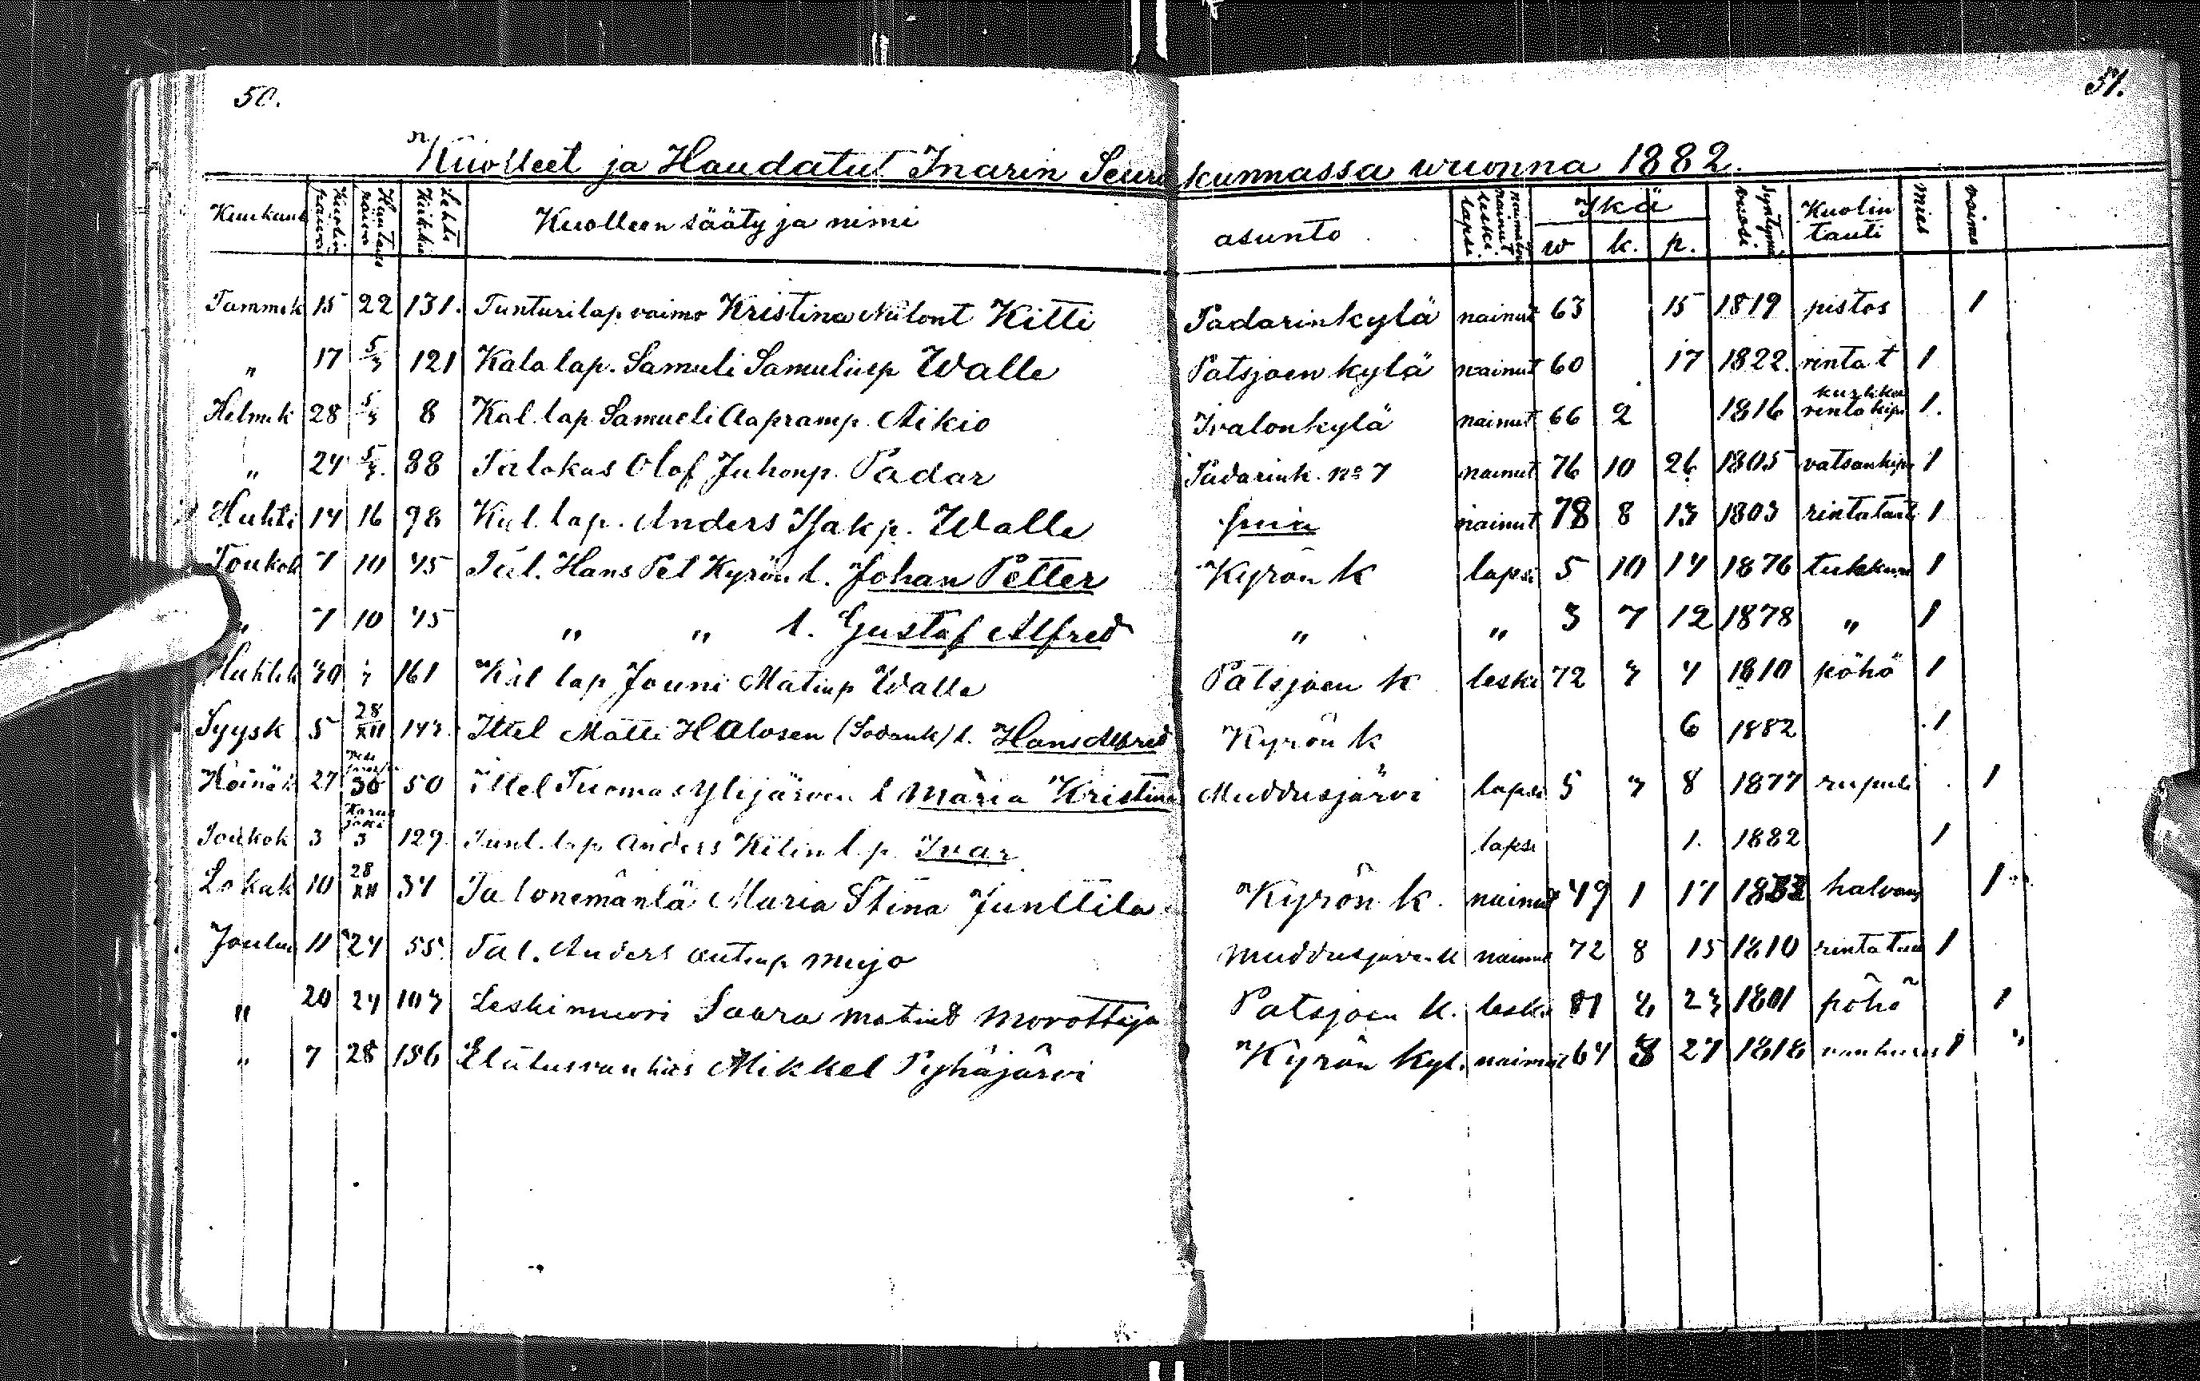 50.
51.
Kuolleet ja Haudatut Inarin Seurakunnassa wuonna 1882.
Kuukausi Kuolinpäivä Hautauspäivä Lehti Kirkkk Kuolleen sääty ja nimi asunto naimaton nainut leski lapsi. Ikä w k. p. Syntymävuosi. Kuolintauti mies vaimo
Tammik 15 22 131. Tunturilap vaimo Kristina Kitti Padarinkylä nainut 63 15 1819 pistos 1
" 17 121 Kala lap. Samuli Samulinp Walle Patsjoen kylä nainut 60 17 1822. rinta t 1
Helmik 28 8 Kal. lap Samueli Aapramp. Aikio Ivalonkylä nainut 66 2 1816 1.
" 24 88 Talokas Olof Juhonp. Padar Padarink. No 7 nainut 76 10 26 1805 vatsankipu 1
Huhti 14 16 98 Kal. lap. Anders Isak p. Walle nainut 78 8 13 1803 rintataut 1
Toukok 7 10 45 Hans Pet Kyrön l. Johan Petter Kyrön k lapsi 5 10 14 1876 1
" 7 10 45 " " l. Gustaf Alfred " " 3 7 12 1878 " 1
Huhtik 30 161 Kal lap Jouni Matinp Walle Patsjoen k leski 72 4 1810 pöhö 1
Syysk 5 28/XII Ittel Matti Halosen (Sodank) l. Hans Alfred Kyrön k 6 1882 1
Heinäk 27 30 50 Ittel Tuomas Ylijärven l Maria Kristina Muddusjärvi lapsi 5 8 1877 rupuli 1
Toukok 3 3 129 Tunt. lap Anders Kitin l. p. Ivar lapsi 1. 1882 1
Lokak 10 28/XII 34 Talonemäntä Maria Stina Junttila Kyrön k. nainut 49 1 17 halvaus 1
Jouluk 11 24 55 Tal. Anders Antinp Mujo Muddusjärv. k nainut 72 8 15 1810 rintatau 1
" 20 24 Leskimuori Saara Matint Morottaja Patsjoen k. leski 81 1801 pöhö 1
" 7 28 156 Elätusvanhus Mikkel Pyhäjärvi Kyrön kyl. nainut 64 27 1818 vanhuus 1